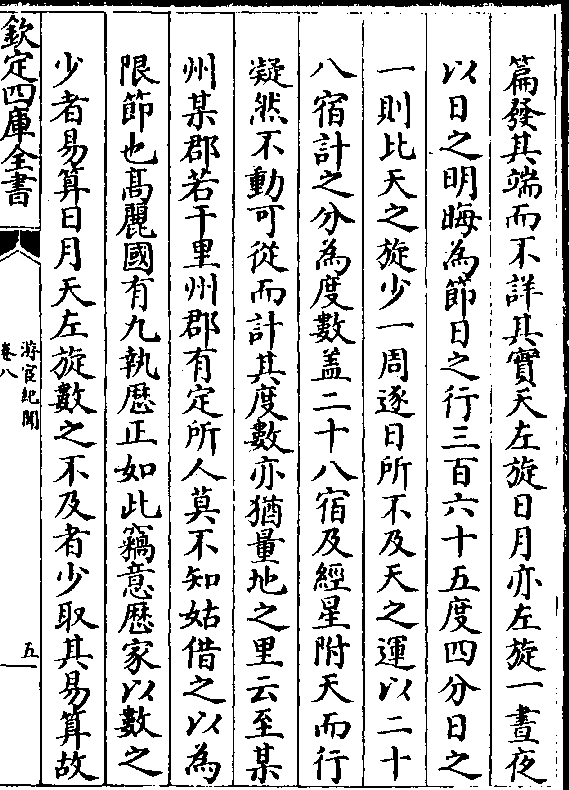 篇發其端而不詳其實天左旋日月亦左旋一晝夜
以日之明晦為節日之行三百六十五度四分日之
一則比天之旋少一周逐日所不及天之運以二十
八宿計之分為度數盖二十八宿及經星附天而行
凝然不動可從而計其度數亦猶量地之里云至某
州某郡若干里州郡有定所人莫不知姑借之以為
限節也髙麗國有九執厯正如此竊意厯家以數之
少者易算日月天左旋數之不及者少取其易算故
欽定四庫全書
游宦紀聞
卷八
五